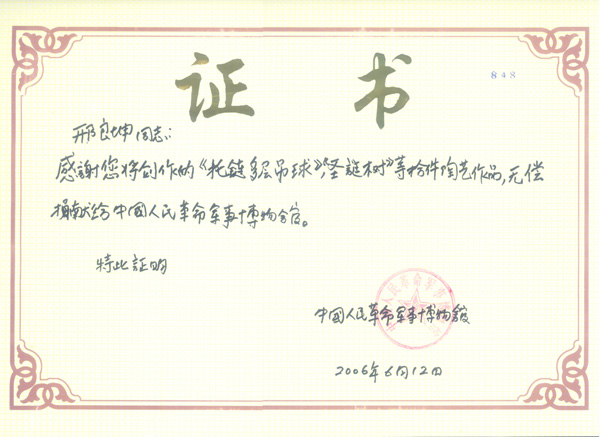 证书
848
邢良坤同志:
感謝您将创作的《托鏈多层吊球》《圣誕树》等拾件陶艺作品,无偿
捐献给中國人民革命军事博物館。
特此証明
中國人民革命军事博物館
2006年6月12日